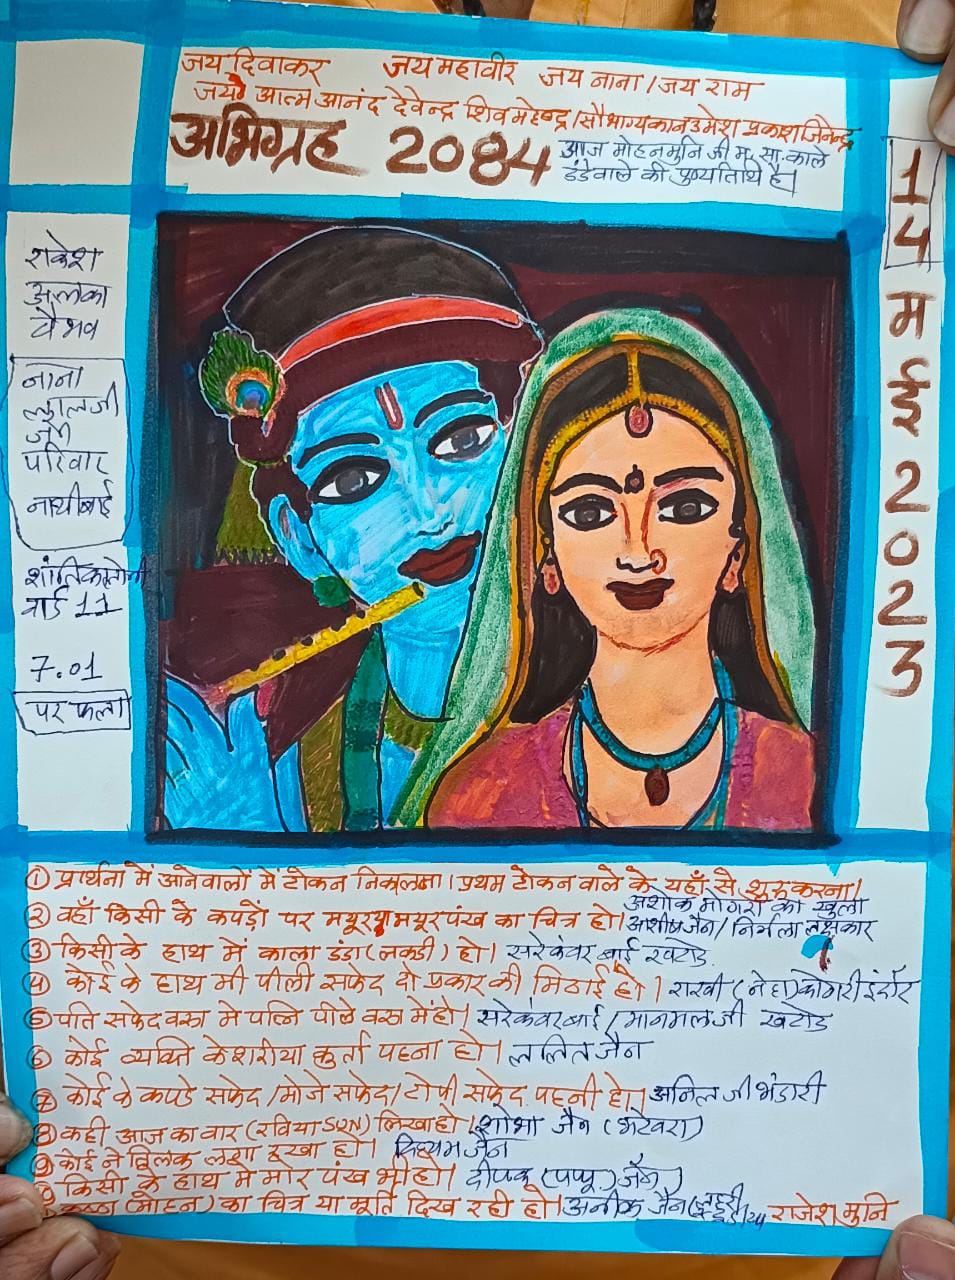 जय दिवाकर जय महावीर जय नाना / जय राम
जय आत्म आनंद देवेन्द्र शिव महेन्द्र / सौभाग्य कान उमेश प्रकाश जिनेन्द्र
अभिग्रह 2084
आज मोहनमुनि जी म. सा. काले
डंडेवाले की पुण्यतिथि है।
14 मई 2023
राकेश
अलका
वैभव
नाना
लालजी
परिवार
नाथीबाई
शांति कालोनी
वार्ड 11
7.01
पर फला
① प्रार्थना में आनेवालों में टोकन निकालना। प्रथम टोकन वाले के यहाँ से शुरू करना।
② वहाँ किसी के कपड़ों पर मयूर या मयूर पंख का चित्र हो। अशोक मोगरा का खुला
आशीष जैन / निर्मला लक्षकार
③ किसी के हाथ में काला डंडा (लकडी) हो। सरेकंवर बाई खटोड
④ कोई के हाथ भी पीली सफेद दो प्रकार की मिठाई हो। राखी (नेहा) कोठारी इंदौर
⑤ पति सफेद वस्त्र में पत्नि पीले वस्त्र में हो। सरेकंवरबाई / मानमलजी खटोड
⑥ कोई व्यक्ति केशरीया कुर्ता पहना हो। ललित जैन
⑦ कोई के कपडे सफेद / मोजे सफेद / टोपी सफेद पहनी हो। अनिल जी भंडारी
⑧ कही आज का वार (रवि या SUN) लिखा हो। शोभा जैन (भटेवरा)
⑨ कोई ने तिलक लगा रखा हो। जैन
किसी के हाथ में मोर पंख भी हो। दीपक (पप्पू) जैन
कृष्ण (मोहन) का चित्र या मूर्ति दिख रही हो। अनीक जैन राजेश मुनि